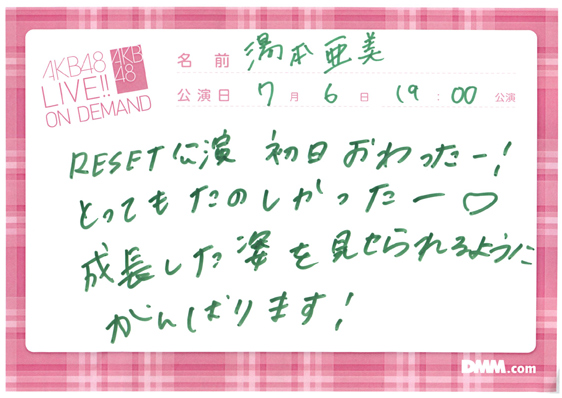 AKB48
LIVE!!
ON DEMAND
AKB
48
名前 湯本亜美
公演日 7月6日 19:00 公演
RESET公演 初日おわったー!
とってもたのしかったー♡
成長した姿を見せられるように
がんばります!
DMM.com